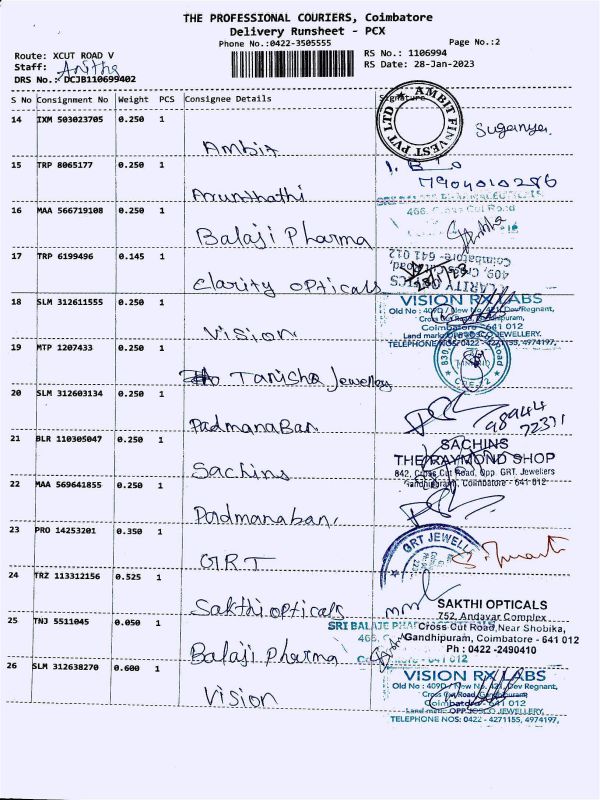 THE PROFESSIONAL COURIERS, Coimbatore
Delivery Runsheet - PCX
Phone No.:0422-3505555
Page No.:2
Route: XCUT ROAD V
RS No.: 1106994
Staff: Anitha
RS Date: 28-Jan-2023
DRS No.: DCJB110699402
S No Consignment No Weight PCS Consignee Details Signature
14 IXM 503023705 0.250 1
Ambit
AMBIT FINVEST PVT LTD
Suganya.
15 TRP 8065177 0.250 1
Arunthathi
16 MAA 566719108 0.250 1
Balaji Pharma
466, Cross Cut Road
17 TRP 6199496 0.145 1
Clarity opticals
CLARITY OPTICS
409, Cross Cut Road,
Coimbatore - 641 012
18 SLM 312611555 0.250 1
Vision
VISION RX LABS
Old No : 409D / New No. 421, Dev Regnant,
Cross Cut Road, Gandhipuram,
Coimbatore - 641 012
Land mark: OPP.JOSCO JEWELLERY.
TELEPHONE NOS: 0422 - 4271155, 4974197,
19 MTP 1207433 0.250 1
Tanisha Jewellery
20 SLM 312603134 0.250 1
Padmanaban
98944
72371
21 BLR 110305047 0.250 1
Sachins
SACHINS
THE RAYMOND SHOP
842, Cross Cut Road, Opp. GRT. Jewellers
Gandhipuram, Coimbatore - 641 012
22 MAA 569641855 0.250 1
Padmanaban
23 PRO 14253201 0.350 1
GRT
GRT JEWELL
24 TRZ 113312156 0.525 1
Sakthi opticals
SAKTHI OPTICALS
752, Andavar Complex
Cross Cut Road, Near Shobika,
Gandhipuram, Coimbatore - 641 012
Ph : 0422 -2490410
25 TNJ 5511045 0.050 1
Balaji Pharma
SRI BALAJE PHAR
26 SLM 312638270 0.600 1
Vision
VISION RX LABS
Old No : 409D / New No. 421, Dev Regnant,
Cross Cut Road, Gandhipuram,
Coimbatore - 641 012
Land mark: OPP.JOSCO JEWELLERY,
TELEPHONE NOS: 0422 - 4271155, 4974197,